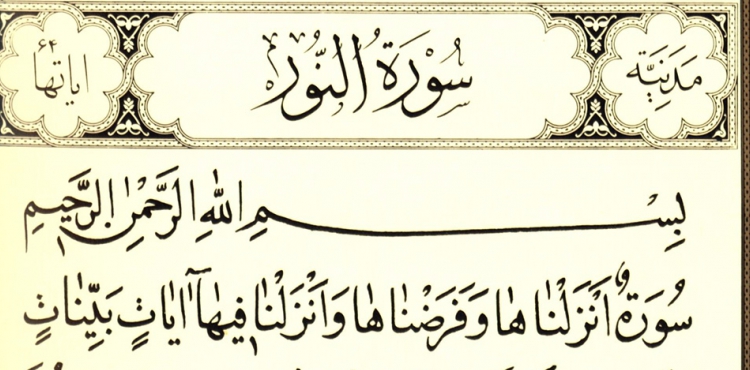 مَدَنِيَّة سُوْرَةُ النُّوْرِ اٰيَاتُهَا ٦٤
بِسْمِ اللّٰهِ الرَّحْمٰنِ الرَّحٖيمِ
سُورَةٌ اَنْزَلْنَاهَا وَفَرَضْنَاهَا وَاَنْزَلْنَا فٖيهَٓا اٰيَاتٍ بَيِّنَاتٍ